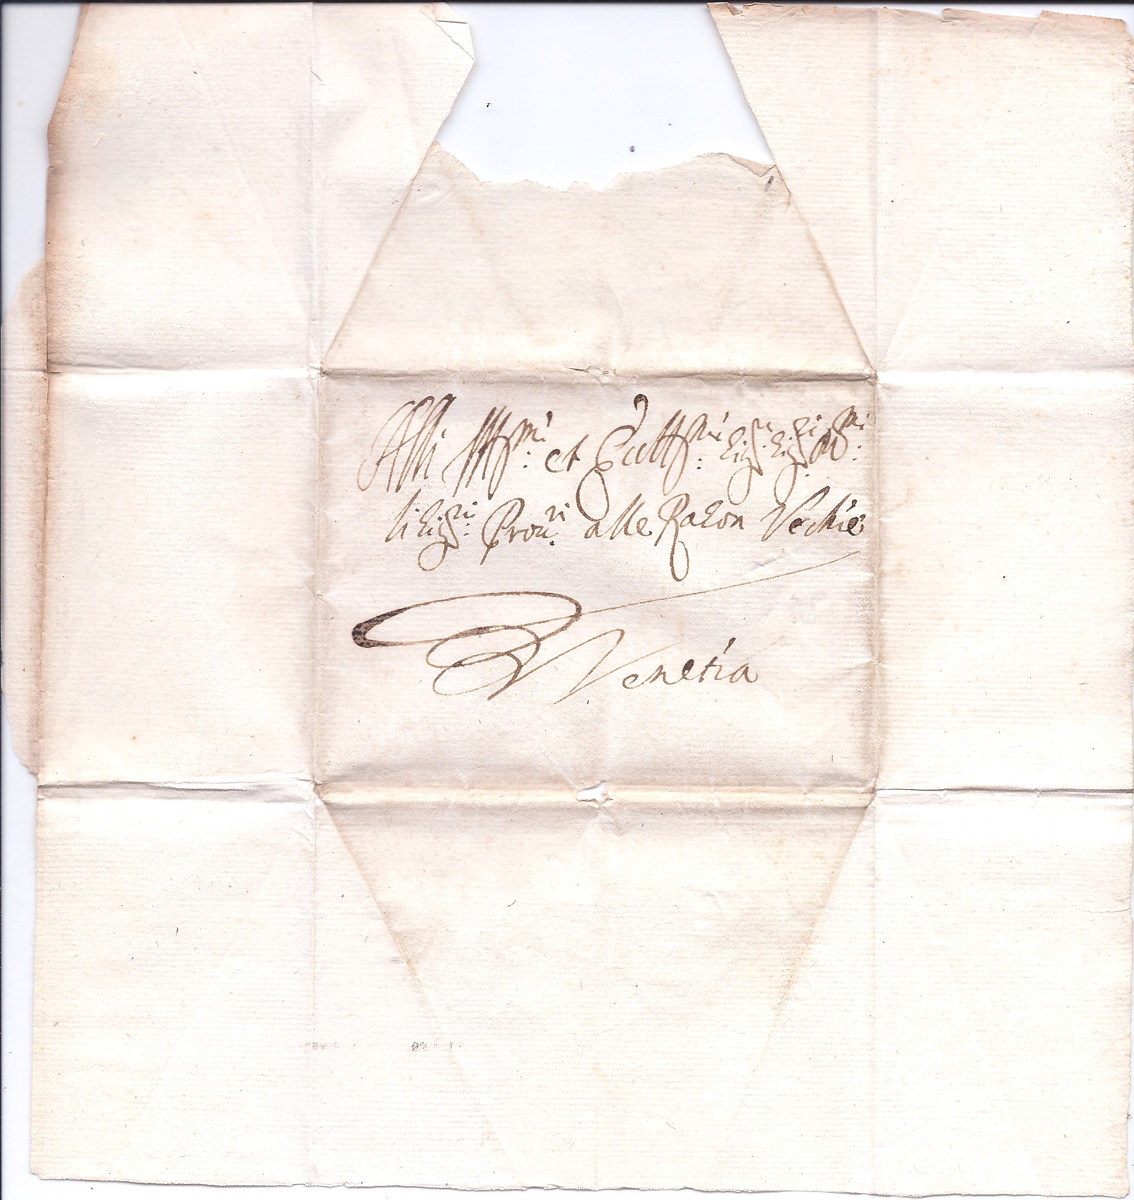 Alli Ill:mi et Ecc:mi Sig:ri Sig:ri
li Sig:ri Prov:ri alle Razon Vechie
Venetia